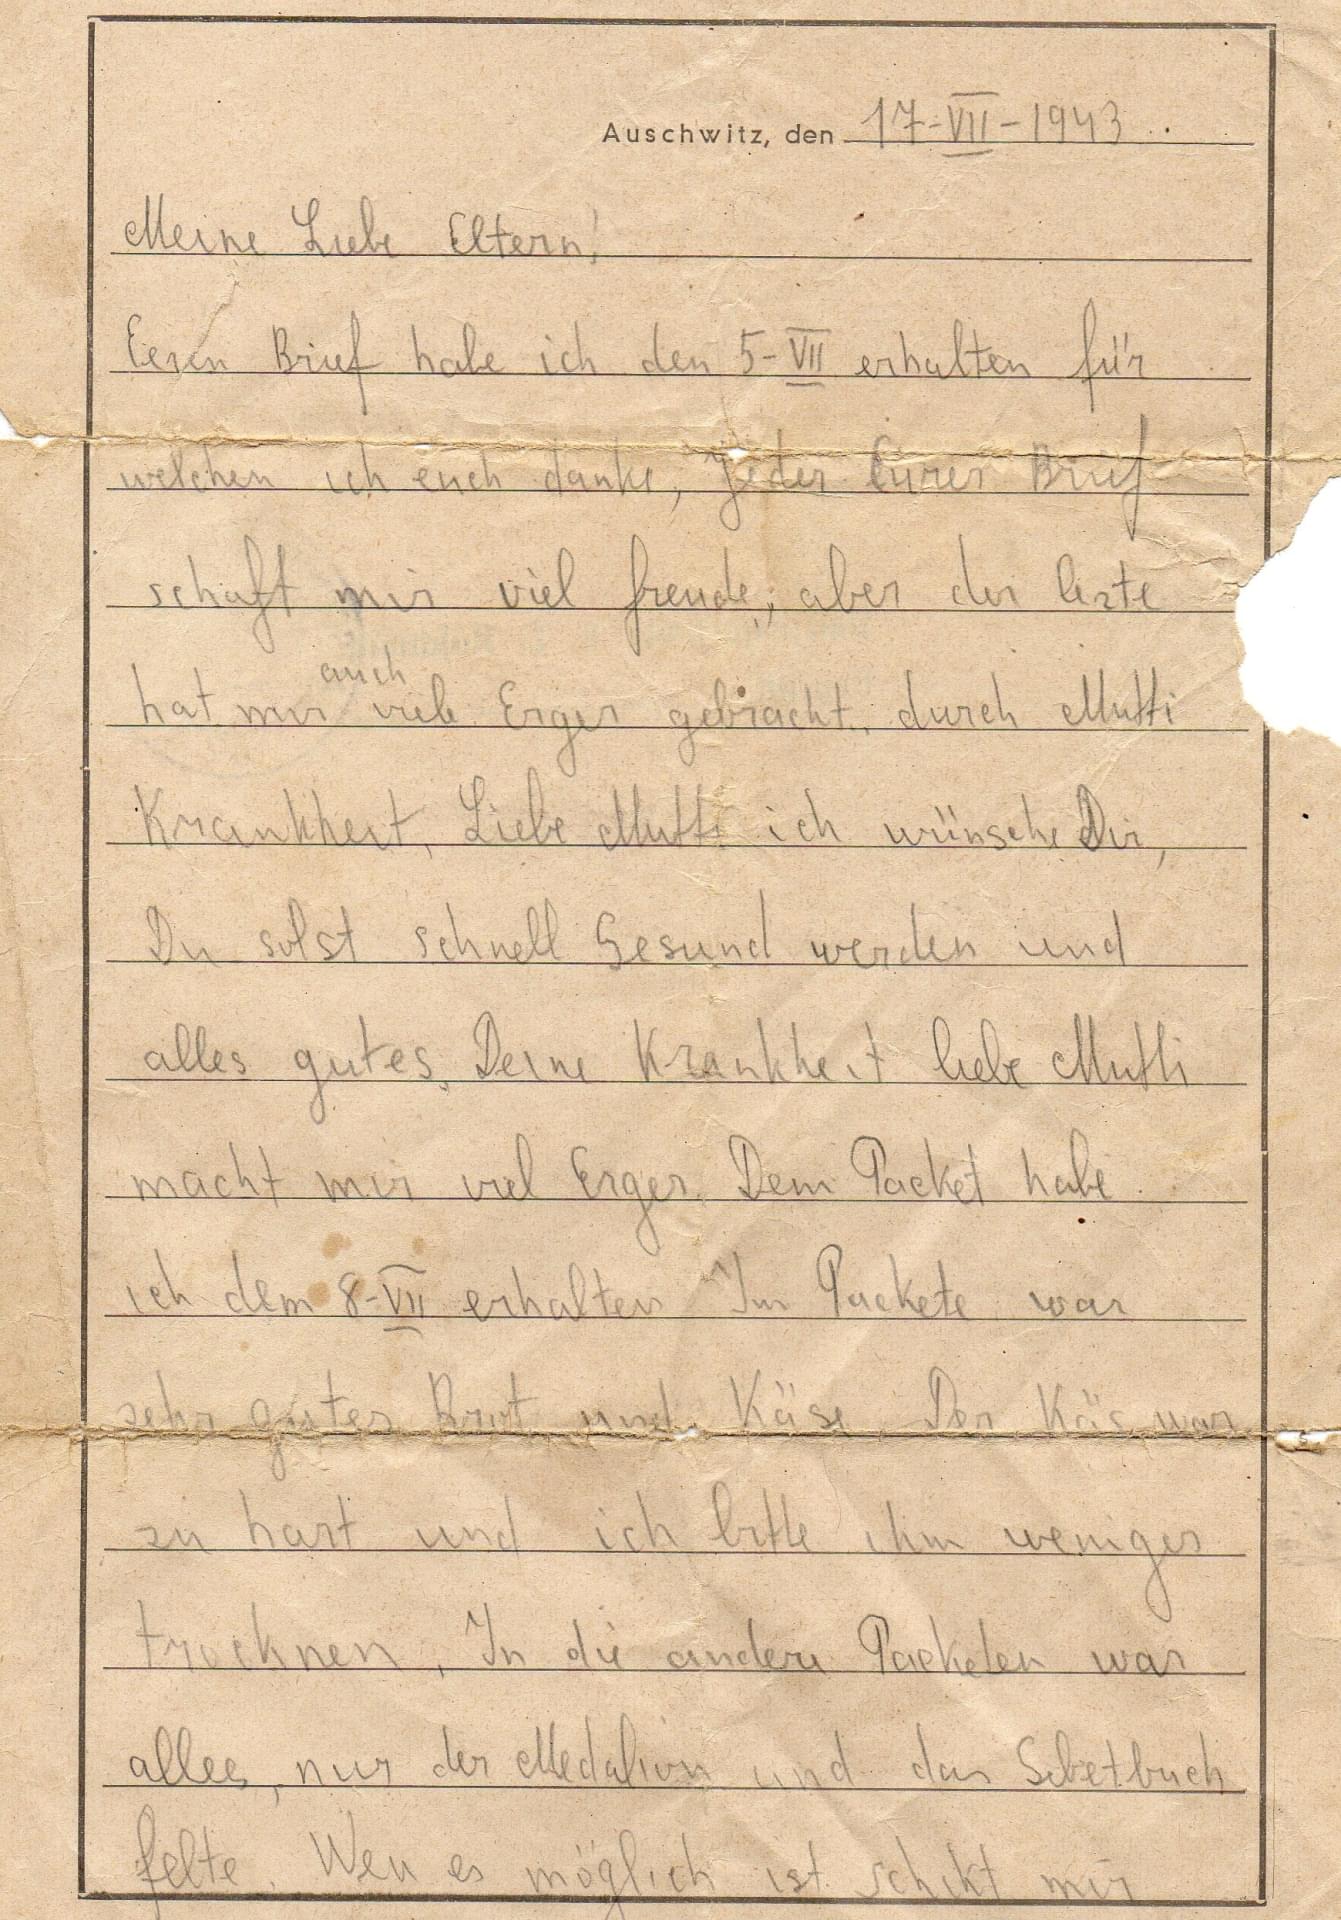 Auschwitz, den 17-VII-1943
Meine Liebe Eltern!
Eeren Brief habe ich den 5-VII erhalten für
welchen ich euch danke, Jeder Eurer Brief
schaft mir viel freude, aber der lezte
auch
hat mir viele Erger gebracht, durch Mutti
Krankheit, Liebe Mutti ich wünsche Dir,
Du solst schnell Gesund werden und
alles gutes, Deine Krankheit liebe Mutti
macht mir viel Erger. Dem Packet habe
ich dem 8-VII erhalten Im Packete war
sehr gutes Brot und Käse. Der Käs war
zu hart und ich bitte ihm weniger
trocknen, In die andere Packeten war
alles, nur der Medalion und das Gebetbuch
felte. Wen es möglich ist schikt mir